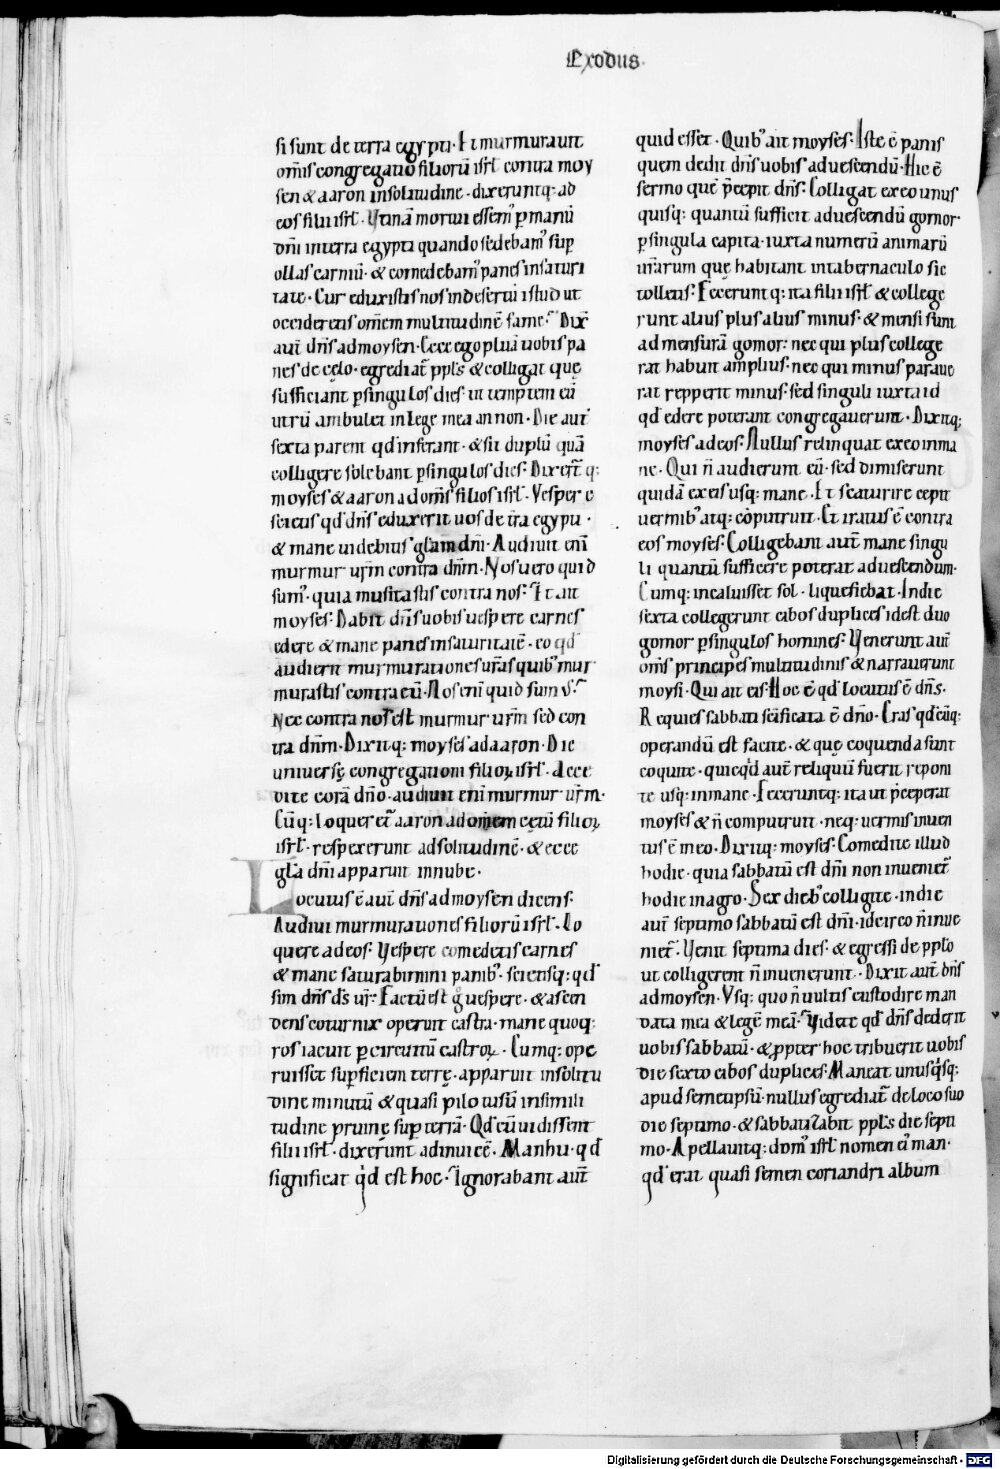 Exodus.
si sunt de terra egypti. Et murmurauit
om̄is congregatio filiorū isrl̄ contra moy
sen & aaron in solitudine. dixeruntq; ad
eos filii isrl̄. Vtinā mortui essemꝰ ꝑ manū
dn̄i in terra egypti quando sedebamꝰ suꝑ
ollas carniū. & comedebamꝰ panes in saturi
tate. Cur eduxistis nos in desertū istud ut
occideretis om̄em multitudinē fame. Dix̄
aut̄ dn̄s ad moysen. Ecce ego pluā uobis pa
nes de cęlo. egrediat̄ ppl̄s & colligat quę
sufficiant ꝑ singulos dies. ut temptem eū
utrū ambulet in lege mea an non. Die aut̄
sexta parent qd̄ inferant. & sit duplū quā
colligere solebant ꝑ singulos dies. Dixer̄t q;
moyses & aaron ad om̄s filios isrl̄. Vespere
scietis qd̄ dn̄s eduxerit uos de tr̄a egypti.
& mane uidebitis gl̄am dn̄i. Audiuit eni̅
murmur ur̄m contra dn̄m. Nos uero quid
sumꝰ. quia musitastis contra nos. Et ait
moyses. Dabit dn̄s uobis uespere carnes
edere & mane panes in saturitate. eo qd̄
audierit murmurationes ur̄as quibꝰ mur
murastis contra eū. Nos eni̅ quid sumꝰ.
Nec contra nos est murmur ur̄m sed con
tra dn̄m. Dixitq; moyses ad aaron. Dic
universę congregationi filioꝝ isrl̄. Acce
dite corā dn̄o. audiuit eni̅ murmur ur̄m.
Cūq; loquer̄et aaron ad om̄em cętū filioꝝ
isrl̄. respexerunt ad solitudinē. & ecce
gl̄a dn̄i apparuit in nube.
Locutus ē aut̄ dn̄s ad moysen dicens.
Audiui murmurationes filiorū isrl̄. Lo
quere ad eos. Vespere comedetis carnes
& mane saturabimini panibꝰ. scietisq; qd̄
sim dn̄s ds̄ ur̄. Factū est g̊ uespere. & ascen
dens coturnix operuit castra. mane quoq;
ros iacuit ꝑ circuitū castroꝝ. Cumq; ope
ruisset suꝑficiem terrę. apparuit in solitu
dine minutū & quasi pilo tusū in simili
tudine pruinę suꝑ terrā. Qd̄ cū uidissent
filii isrl̄. dixerunt ad inuicē. Manhu. qd̄
significat qͥd est hoc. Ignorabant aut̄
quid esset. Quibꝰ ait moyses. Iste ē panis
quem dedit dn̄s uobis ad uescendū. Hic ē
sermo quē p̄cepit dn̄s. Colligat ex eo unus
quisq; quantū sufficit ad uescendū gomor.
ꝑ singula capita. iuxta numerū animarū
ur̄arum quę habitant in tabernaculo sic
tolletis. Feceruntq; ita filii isrl̄ & college
runt alius plus alius minus. & mensi sunt
ad mensurā gomor. nec qui plus college
rat habuit amplius. nec qui minus paraue
rat repperit minus. sed singuli iuxta id
qd̄ edere poterant congregauerunt. Dixitq;
moyses ad eos. Nullus relinquat ex eo in ma
ne. Qui n̄ audierunt eū. sed dimiserunt
quidā ex eis usq; mane. Et scaturire cepit
uermibꝰ atq; cōputruit. Et iratus ē contra
eos moyses. Colligebant aut̄ mane singu
li quantū sufficere poterat ad uescendum.
Cumq; incaluisset sol. liquefiebat. In die
sexta collegerunt cibos duplices idest duo
gomor ꝑ singulos homines. Venerunt aut̄
om̄s principes multitudinis & narrauerunt
moysi. Qui ait eis. Hoc ē qd̄ locutus ē dn̄s.
Requies sabbati sc̄ificata ē dn̄o. Cras qd̄cūq;
operandū est facite. & quę coquenda sunt
coquite. quicqͥd aut̄ reliquū fuerit reponi
te usq; in mane. Feceruntq; ita ut p̄ceperat
moyses & n̄ computruit. neq; uermis inuen
tus ē in eo. Dixitq; moyses. Comedite illud
hodie. quia sabbatū est dn̄i non inueniet̄
hodie in agro. Sex diebꝰ colligite. in die
aut̄ septimo sabbatū est dn̄i. idcirco n̄ inue
niet̄. Venit septima dies. & egressi de pplo
ut colligerent n̄ inuenerunt. Dixit aut̄ dn̄s
ad moysen. Vsq; quo n̄ uultis custodire man
data mea & legē meā. Videte qd̄ dn̄s dederit
uobis sabbatū. & ꝓpter hoc tribuerit uobis
die sexto cibos duplices. Maneat unusqͥsq;
apud semetipsū. nullus egrediat̄ de loco suo
die septimo. & sabbatizabit ppl̄s die septi
mo. Apellauitq; domꝰ isrl̄ nomen eiꝰ man.
qd̄ erat quasi semen coriandri album
Digitalisierung gefördert durch die Deutsche Forschungsgemeinschaft - DFG